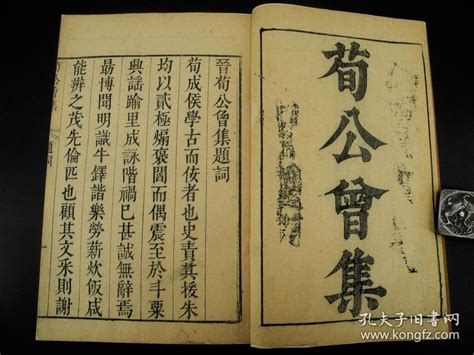 荀公曾集
晉荀公曾集題詞
荀成侯學古而佞者也史責其援朱
均以貳極煽褒閻而偶震至於斗粟
興謠踰里成詠階禍已甚誠無辭焉
朂博聞明識牛鐸諧樂勞薪炊飯咸
能辨之茂先倫匹也顧其文采則謝
孔夫子旧书网
www.kongfz.com